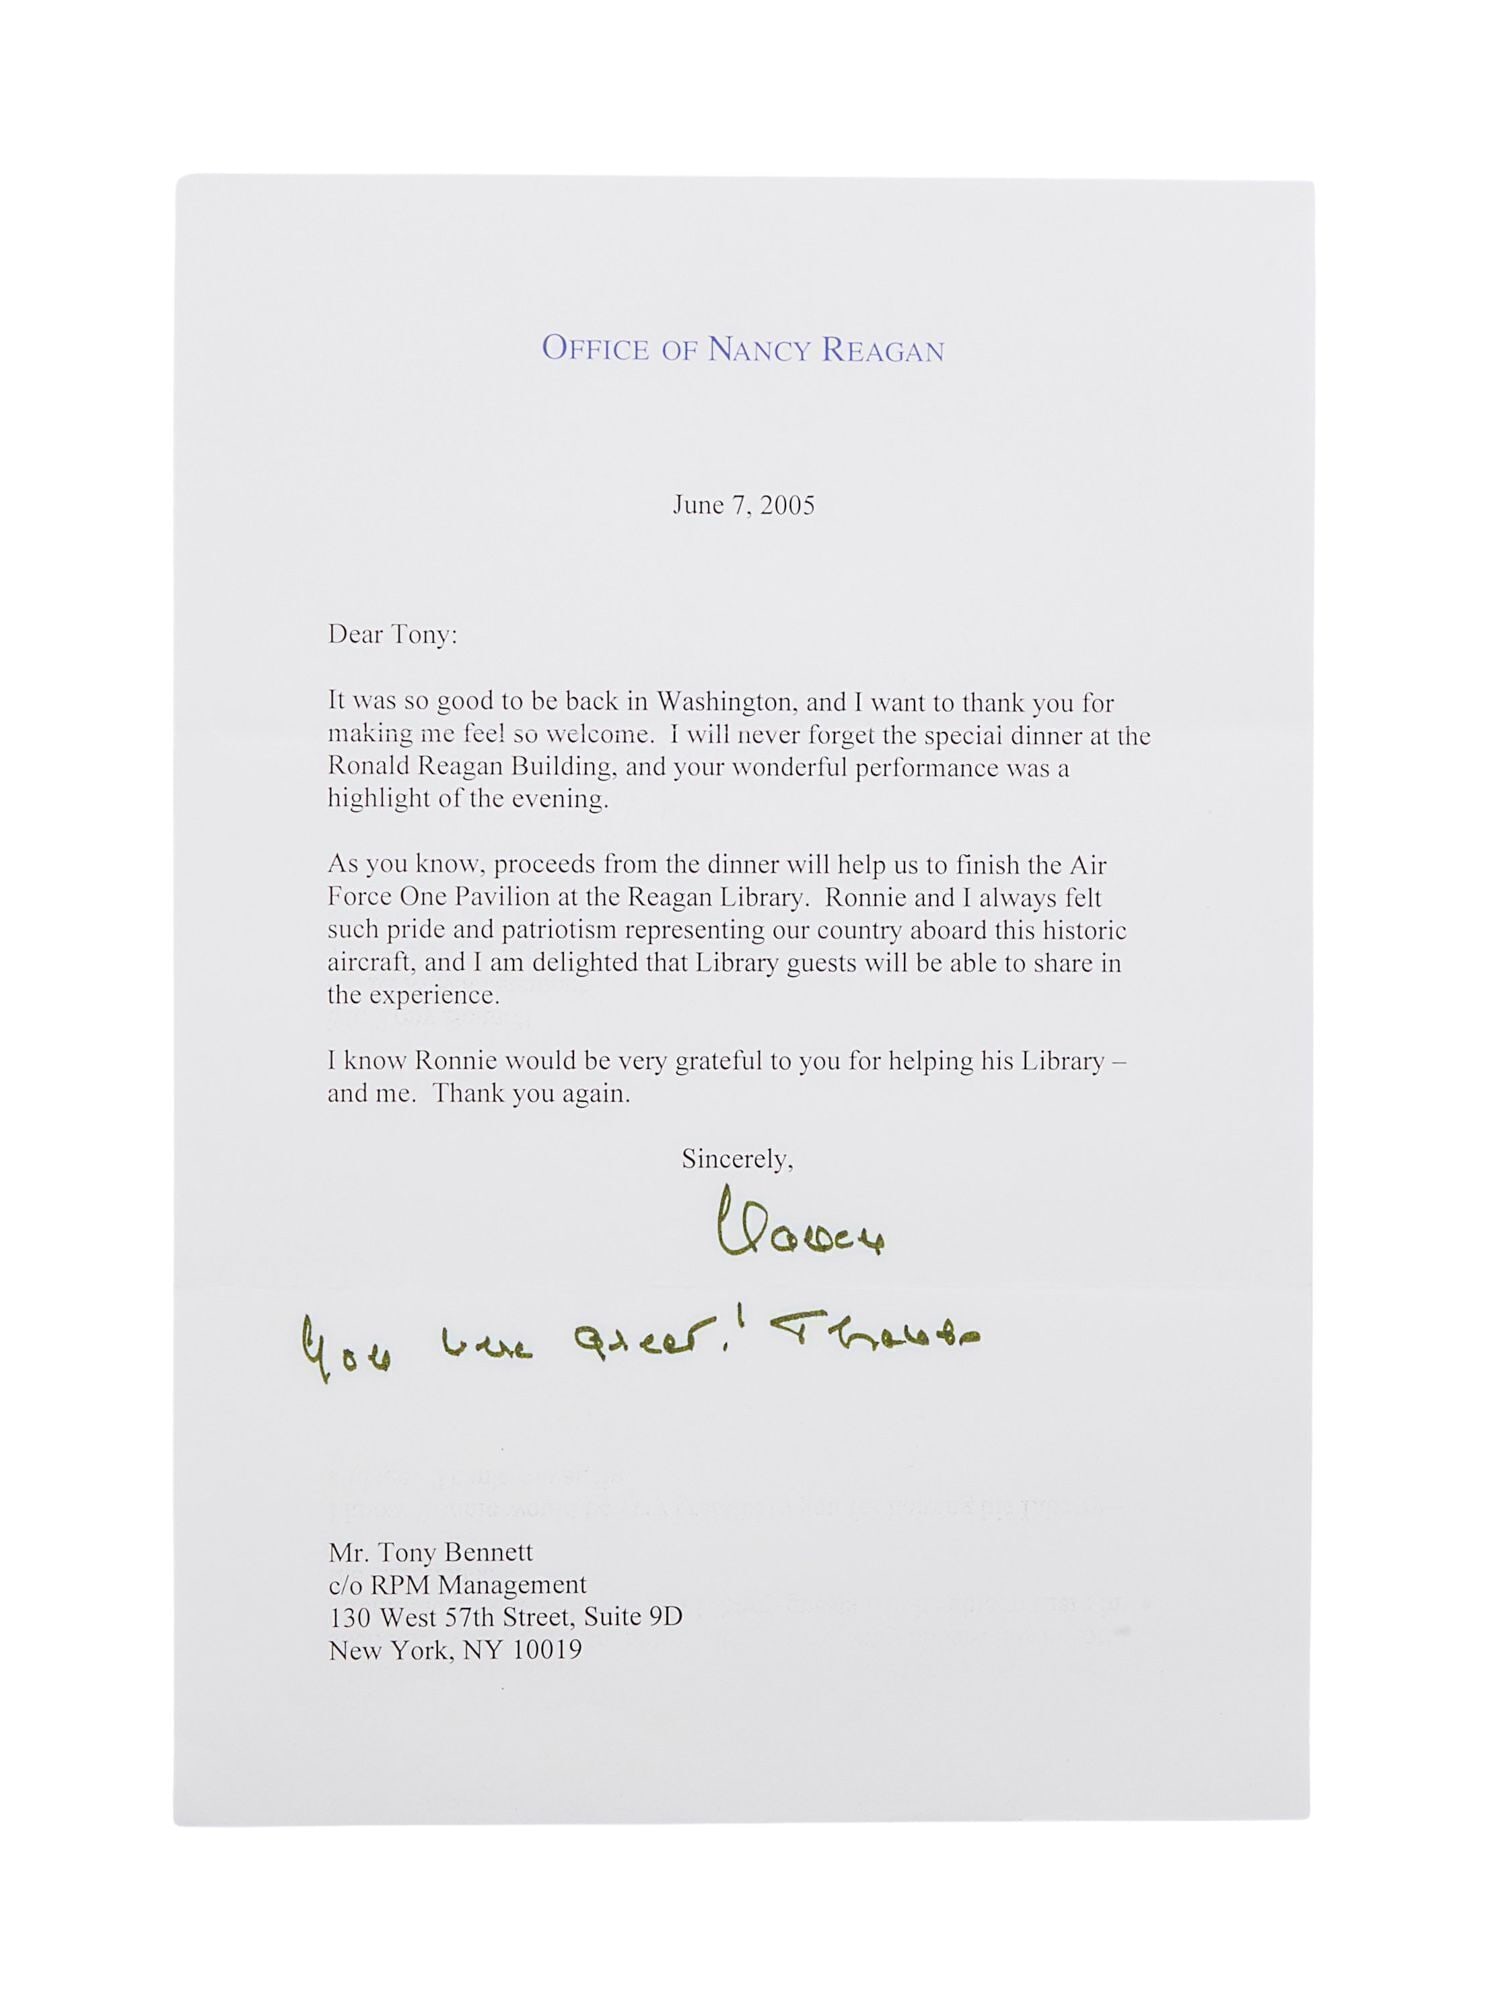 OFFICE OF NANCY REAGAN
June 7, 2005
Dear Tony:
It was so good to be back in Washington, and I want to thank you for
making me feel so welcome.  I will never forget the special dinner at the
Ronald Reagan Building, and your wonderful performance was a
highlight of the evening.
As you know, proceeds from the dinner will help us to finish the Air
Force One Pavilion at the Reagan Library.  Ronnie and I always felt
such pride and patriotism representing our country aboard this historic
aircraft, and I am delighted that Library guests will be able to share in
the experience.
I know Ronnie would be very grateful to you for helping his Library –
and me.  Thank you again.
Sincerely,
Nancy
You were great! Thanks
Mr. Tony Bennett
c/o RPM Management
130 West 57th Street, Suite 9D
New York, NY 10019